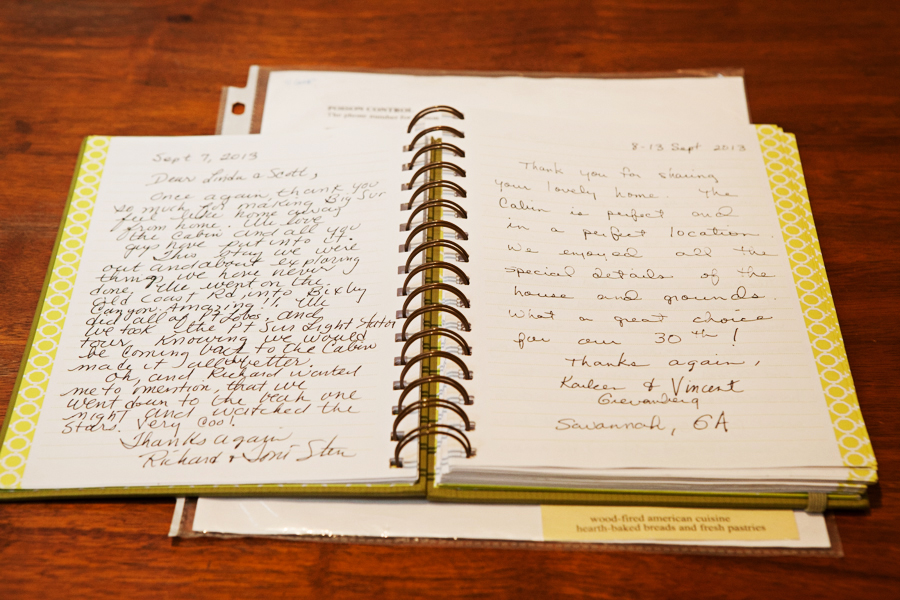 POISON CONTROL
The phone number for
Sept 7, 2013
Dear Linda & Scott,
Once again, thank you
so much for making Big Sur
feel like home away
from home. We love
the cabin and all you
guys have put into it.
This stay we were
out and about exploring
things we have never
done. We went on the
Old Coast Rd, into Bixby
Canyon. Amazing!! We
did all of Pt Lobos, and
we took the Pt Sur Light Station
tour. Knowing we would
be coming back to the Cabin
made it all better.
Oh, and Richard wanted
me to mention, that we
went down to the beach one
night and watched the
stars. Very Cool!
Thanks again
Richard & Toni
8-13 Sept 2013
Thank you for sharing
your lovely home. The
Cabin is perfect and
in a perfect location.
We enjoyed all the
special details of the
house and grounds.
What a great choice
for our 30th!
Thanks again,
& Vincent
Savannah, GA
wood-fired american cuisine
hearth-baked breads and fresh pastries